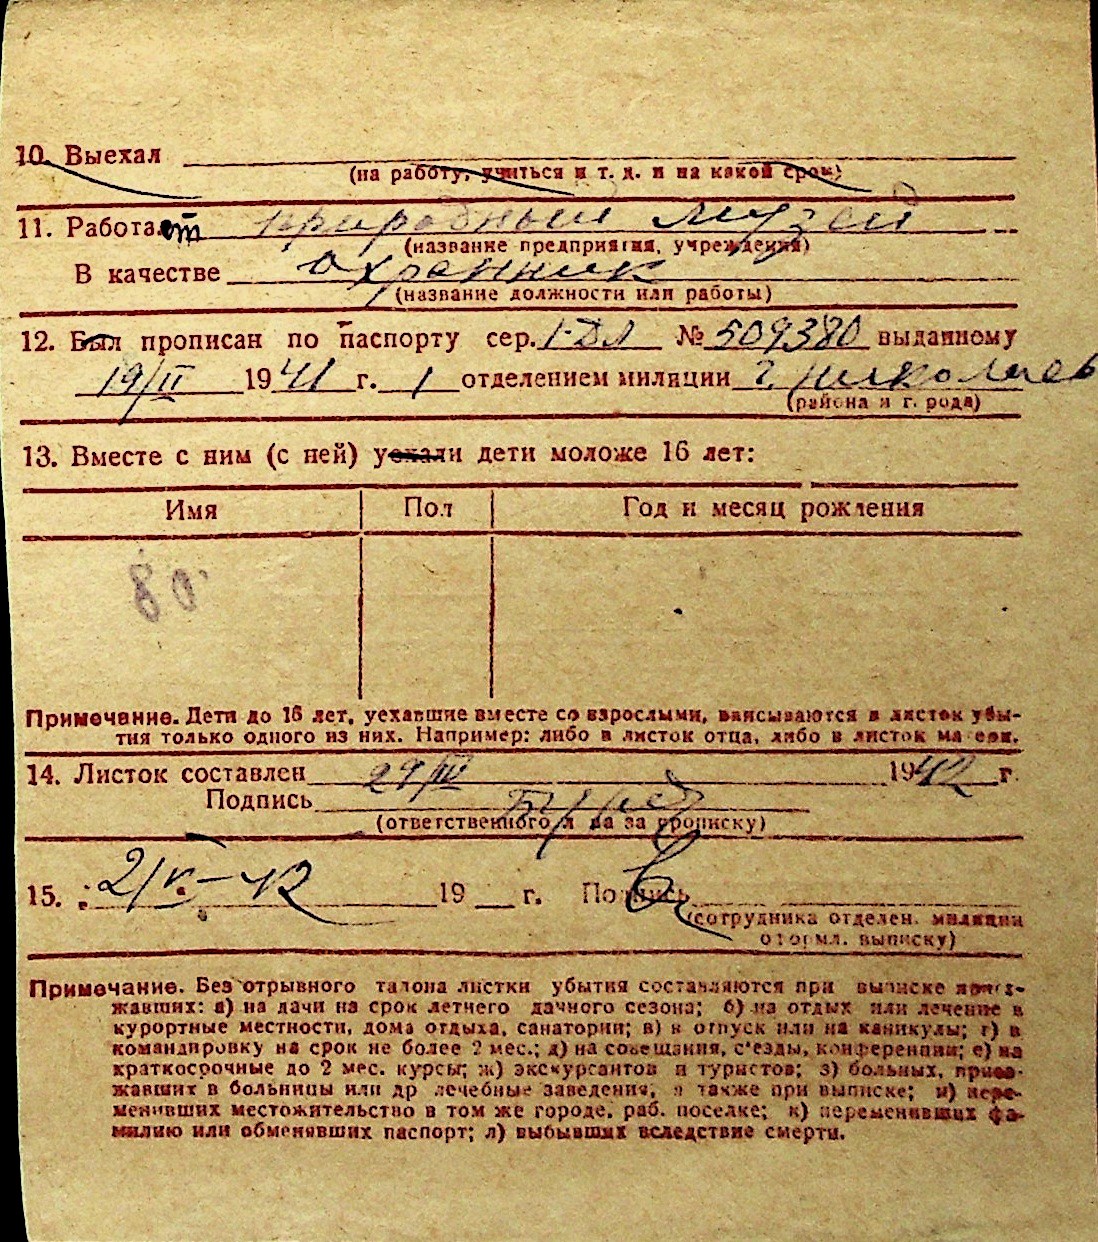 10. Выехал
(на работу, учиться и т. д. и на какой срок)
11. Работает природный музей
(название предприятия, учреждения)
В качестве охранник
(название должности или работы)
12. Был прописан по паспорту сер. I-ДЛ № 509380 выданному
19/II 1941 г. 1 отделением милиции г. Николаев
(района и г. рода)
13. Вместе с ним (с ней) уехали дети моложе 16 лет:
Имя Пол Год и месяц рождения
80
Примечание. Дети до 16 лет, уехавшие вместе со взрослыми, вписываются в листок убы-
тия только одного из них. Например: либо в листок отца, либо в листок матери.
14. Листок составлен 29/IV 1942 г.
Подпись
(ответственного л ца за прописку)
15. 2/V-42 19 г. Подпись
(сотрудника отделен. милиции
оформл. выписку)
Примечание. Без отрывного талона листки убытия составляются при выписке приез-
жавших: а) на дачи на срок летнего дачного сезона; б) на отдых или лечение в
курортные местности, дома отдыха, санатории; в) в отпуск или на каникулы; г) в
командировку на срок не более 2 мес.; д) на совещания, с'езды, конференции; е) на
краткосрочные до 2 мес. курсы; ж) экскурсантов и туристов; з) больных, приез-
жавших в больницы или др лечебные заведения, а также при выписке; и) пере-
менивших местожительство в том же городе, раб. поселке; к) переменивших фа-
милию или обменявших паспорт; л) выбывших вследствие смерти.